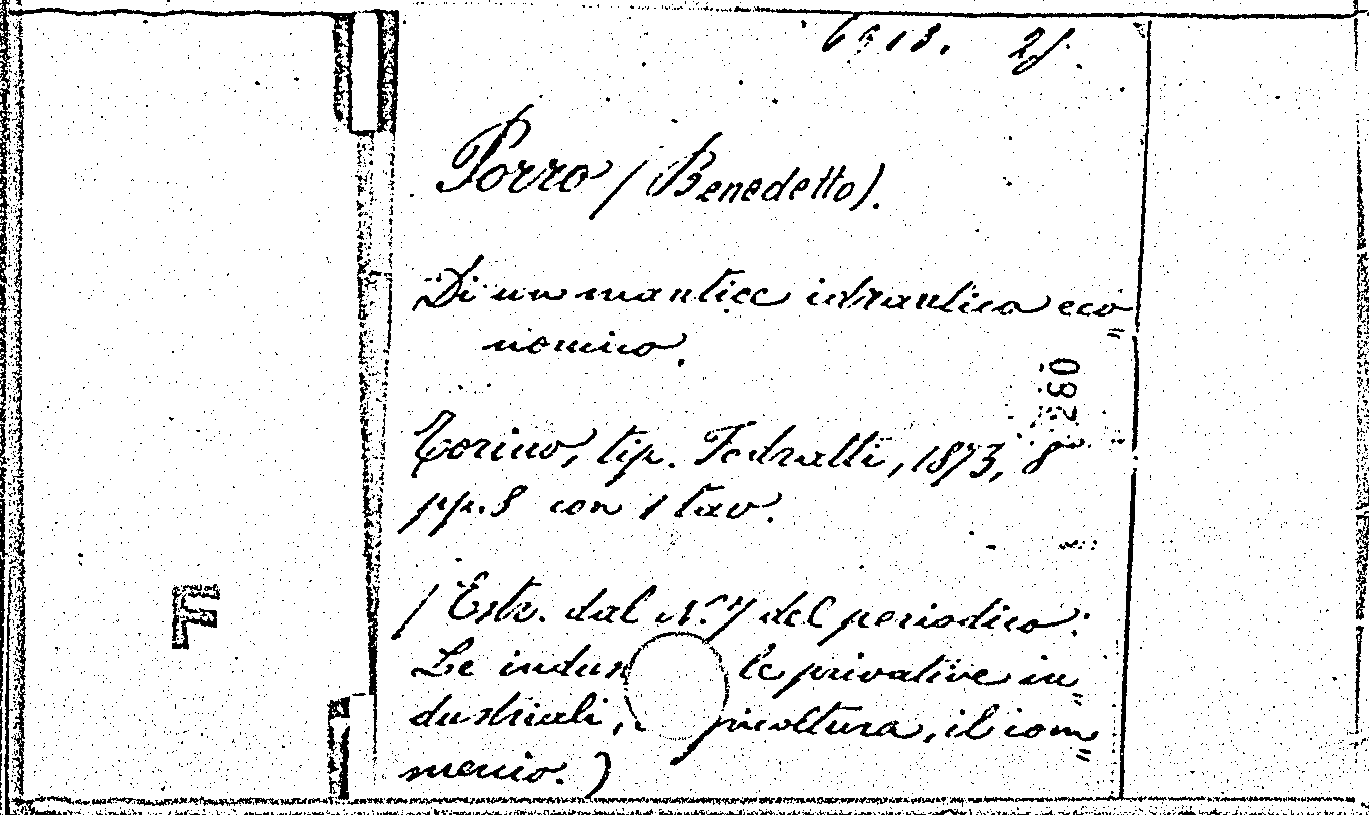 6913. 28.
Porro (Benedetto).
Di un mantice idraulico eco=
nomico.
280
Torino, tip. Fodratti, 1873, 8°
pp. 8 con 1 tav.
F
(Estr. dal N.° 7 del periodico:
Le indus le privative in=
dustriali, picoltura, il com=
mercio.)